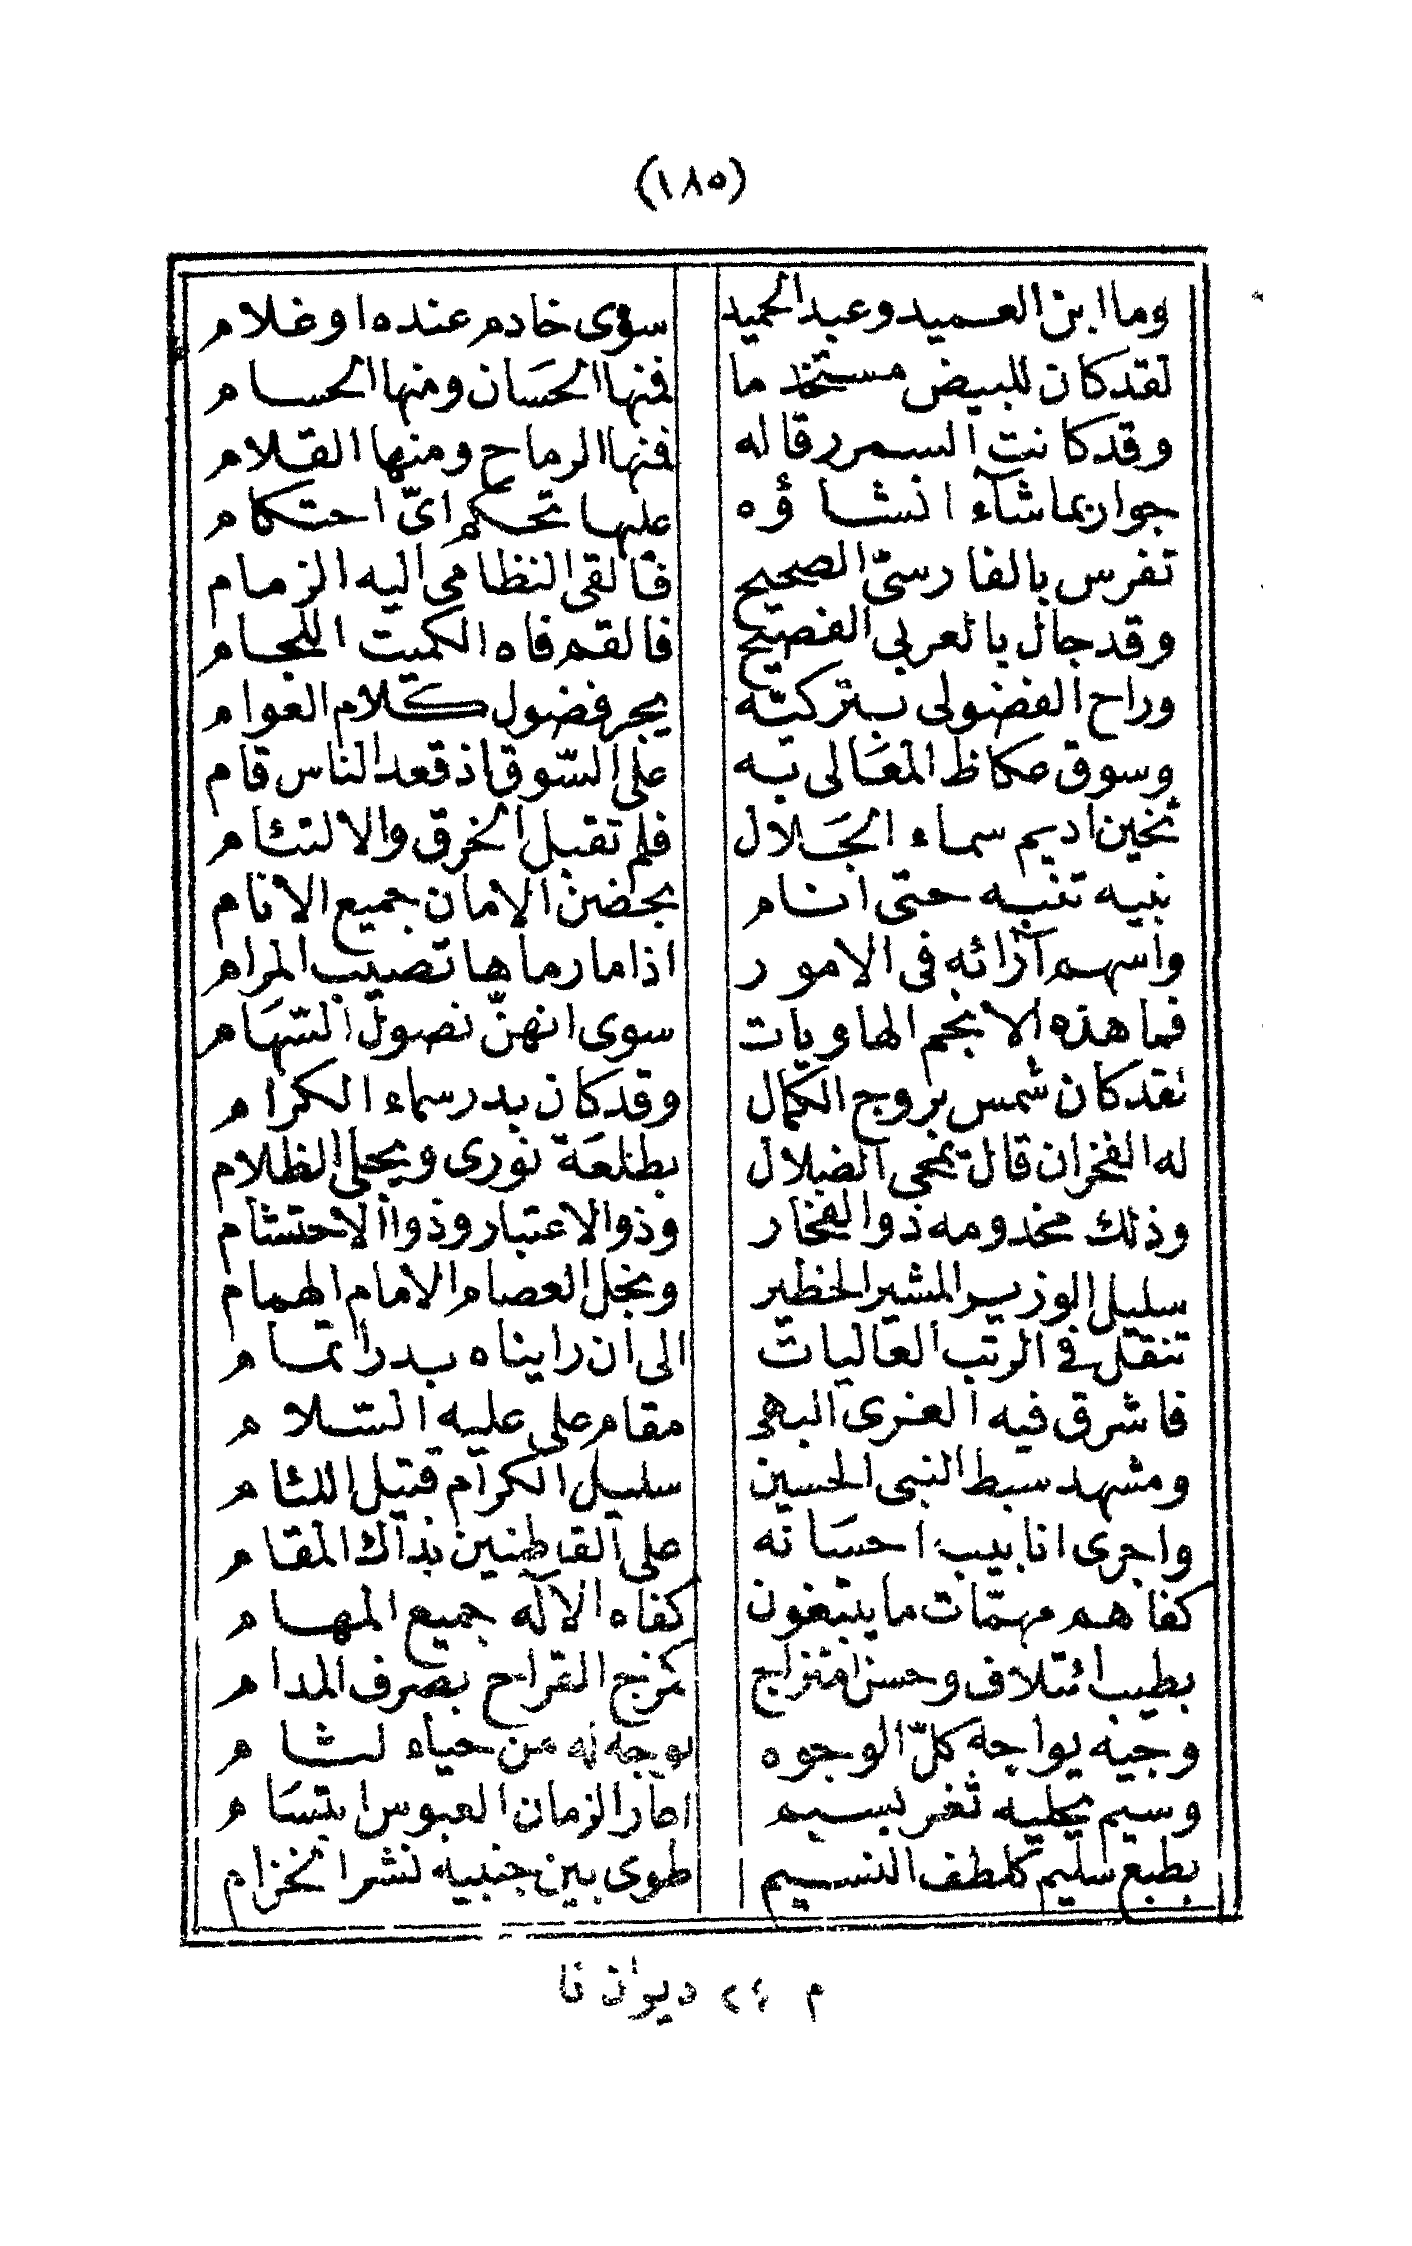 (١٨٥)
وما ابن العميد وعبد الحميد سوى خادم عنده او غلام
لقد كان للبيض مستخدما فمنها الحسان ومنها الحسام
وقد كانت السمر رقا له فمنها الرماح ومنها القلام
جوار بما شآء انشاؤه عليها تحكم اىّ احتكام
تفرس بالفارسىّ الصحيح فألقى النظامى اليه الزمام
وقد جال بالعربى الفصيح فالقم فاه الكميت اللجام
وراح الفضولى بتركيّه يجر فضول كلام العوام
وسوق عكاظ المعَالى به على السّوق اذ قعد الناس قام
ثخين اديم سماء الجَلال فلم تقبل الخرق والالتئام
نبيه تنبه حتى انام بحضن الامان جميع الانام
واسهم آرائه فى الامور اذا ما رماها تصيب المرام
فما هذه الانجم الهاويات سوى انهنّ نصول السّهَام
لقد كان شمس بروج الكمال وقد كان بدر سماء الكرام
له الفخر ان قال يمحى الضلال بطلعَة نورى ويجلى الظلام
وذلك مخدومه ذو الفخار وذو الاعتبار وذو الاحتشام
سليل الوزير المشير الخطير ونجل العصام الامام الهمام
تنقل فى الرتب العاليات الى ان رايناه بدرا تمام
فاشرق فيه الغرى البهى مقام على عليه السّلام
ومشهد سبط النبى الحسين سليل الكرام قتيل اللئام
واجرى انابيب احسَانه على القاطنين بذاك المقام
كفاهم مهمّات ما ينبغون كفاه الآله جميع المهام
بطيب ائتلاف وحسن امتزاج كمزج القراح بصرف المدام
وجيه يواجه كلّ الوجوه بوجه له من حياء لثام
وسيم يحليه ثغر بسيم اعار الزمان العبوس ابتسَام
بطبع سليم كلطف النسيم طوى بين جنبيه نشر الخزام
م ٢٤ ديوان فا